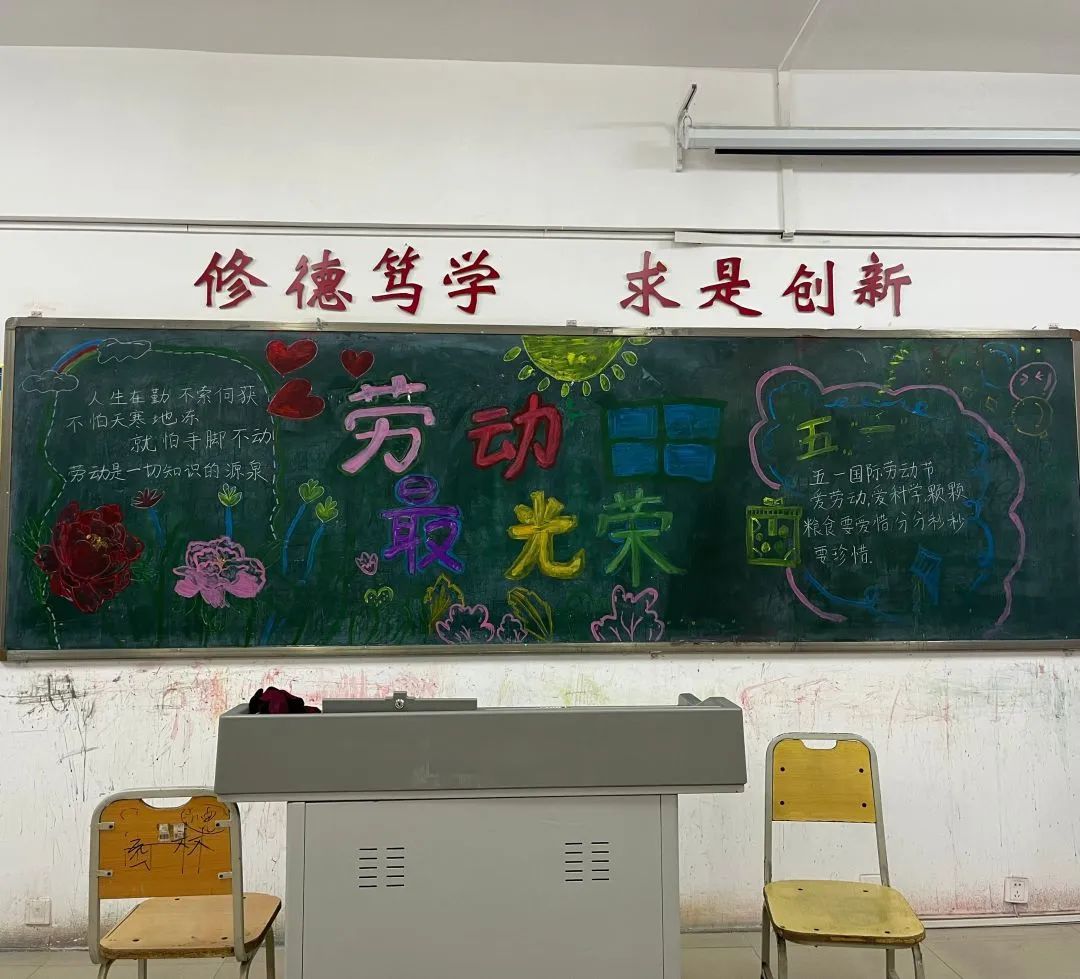 修德笃学 求是创新
人生在勤 不索何获
不怕天寒地冻
就怕手脚不动
劳动是一切知识的源泉
劳动
最光荣
五一
五一国际劳动节
爱劳动,爱科学,颗颗
粮食要爱惜分分秒秒
要珍惜.